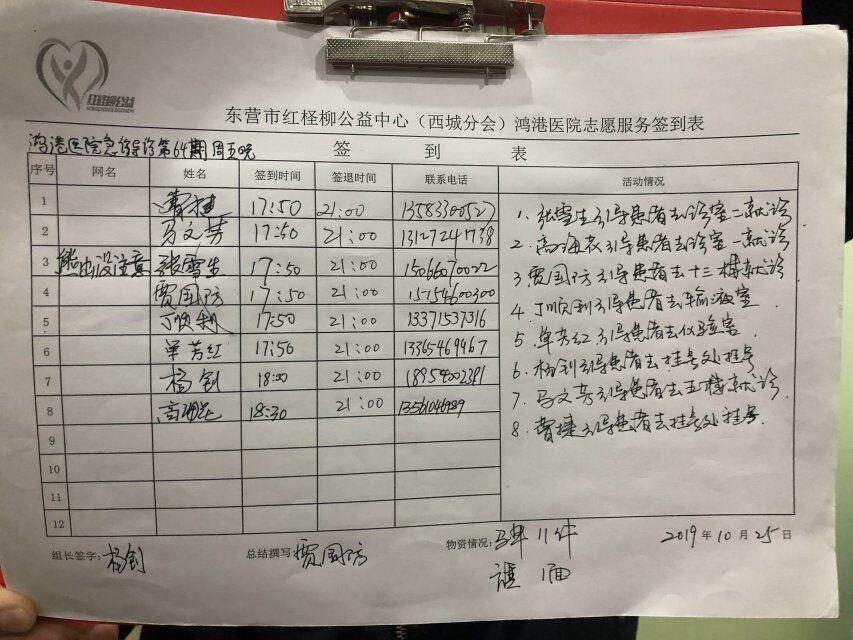 红柽柳公益
东营市红柽柳公益中心（西城分会）鸿港医院志愿服务签到表
鸿港医院急诊导诊第64期 周五晚
签 到 表
序号 网名 姓名 签到时间 签退时间 联系电话 活动情况
1 曹捷 17:50 21:00 13583300527
2 马文芳 17:50 21:00 13127241738
3 熊出没注意 张雪生 17:50 21:00 15066070022
4 贾国防 17:50 21:00 15154600300
5 丁顺利 17:50 21:00 13371537316
6 单芳红 17:50 21:00 13365469967
7 杨钊 18:00 21:00 18954002391
8 高海花 18:30 21:00 13561046989
9
10
11
12
1. 张雪生引导患者去诊室二就诊
2. 高海花引导患者去诊室一就诊
3 贾国防引导患者去十三楼就诊
4. 丁顺利引导患者去输液室
5. 单芳红引导患者去化验室
6. 杨钊引导患者去挂号处挂号
7. 马文芳引导患者去五楼就诊
8. 曹捷引导患者去挂号处挂号.
组长签字: 杨钊 总结撰写 贾国防 物资情况: 11件 2019年10月25日
1面